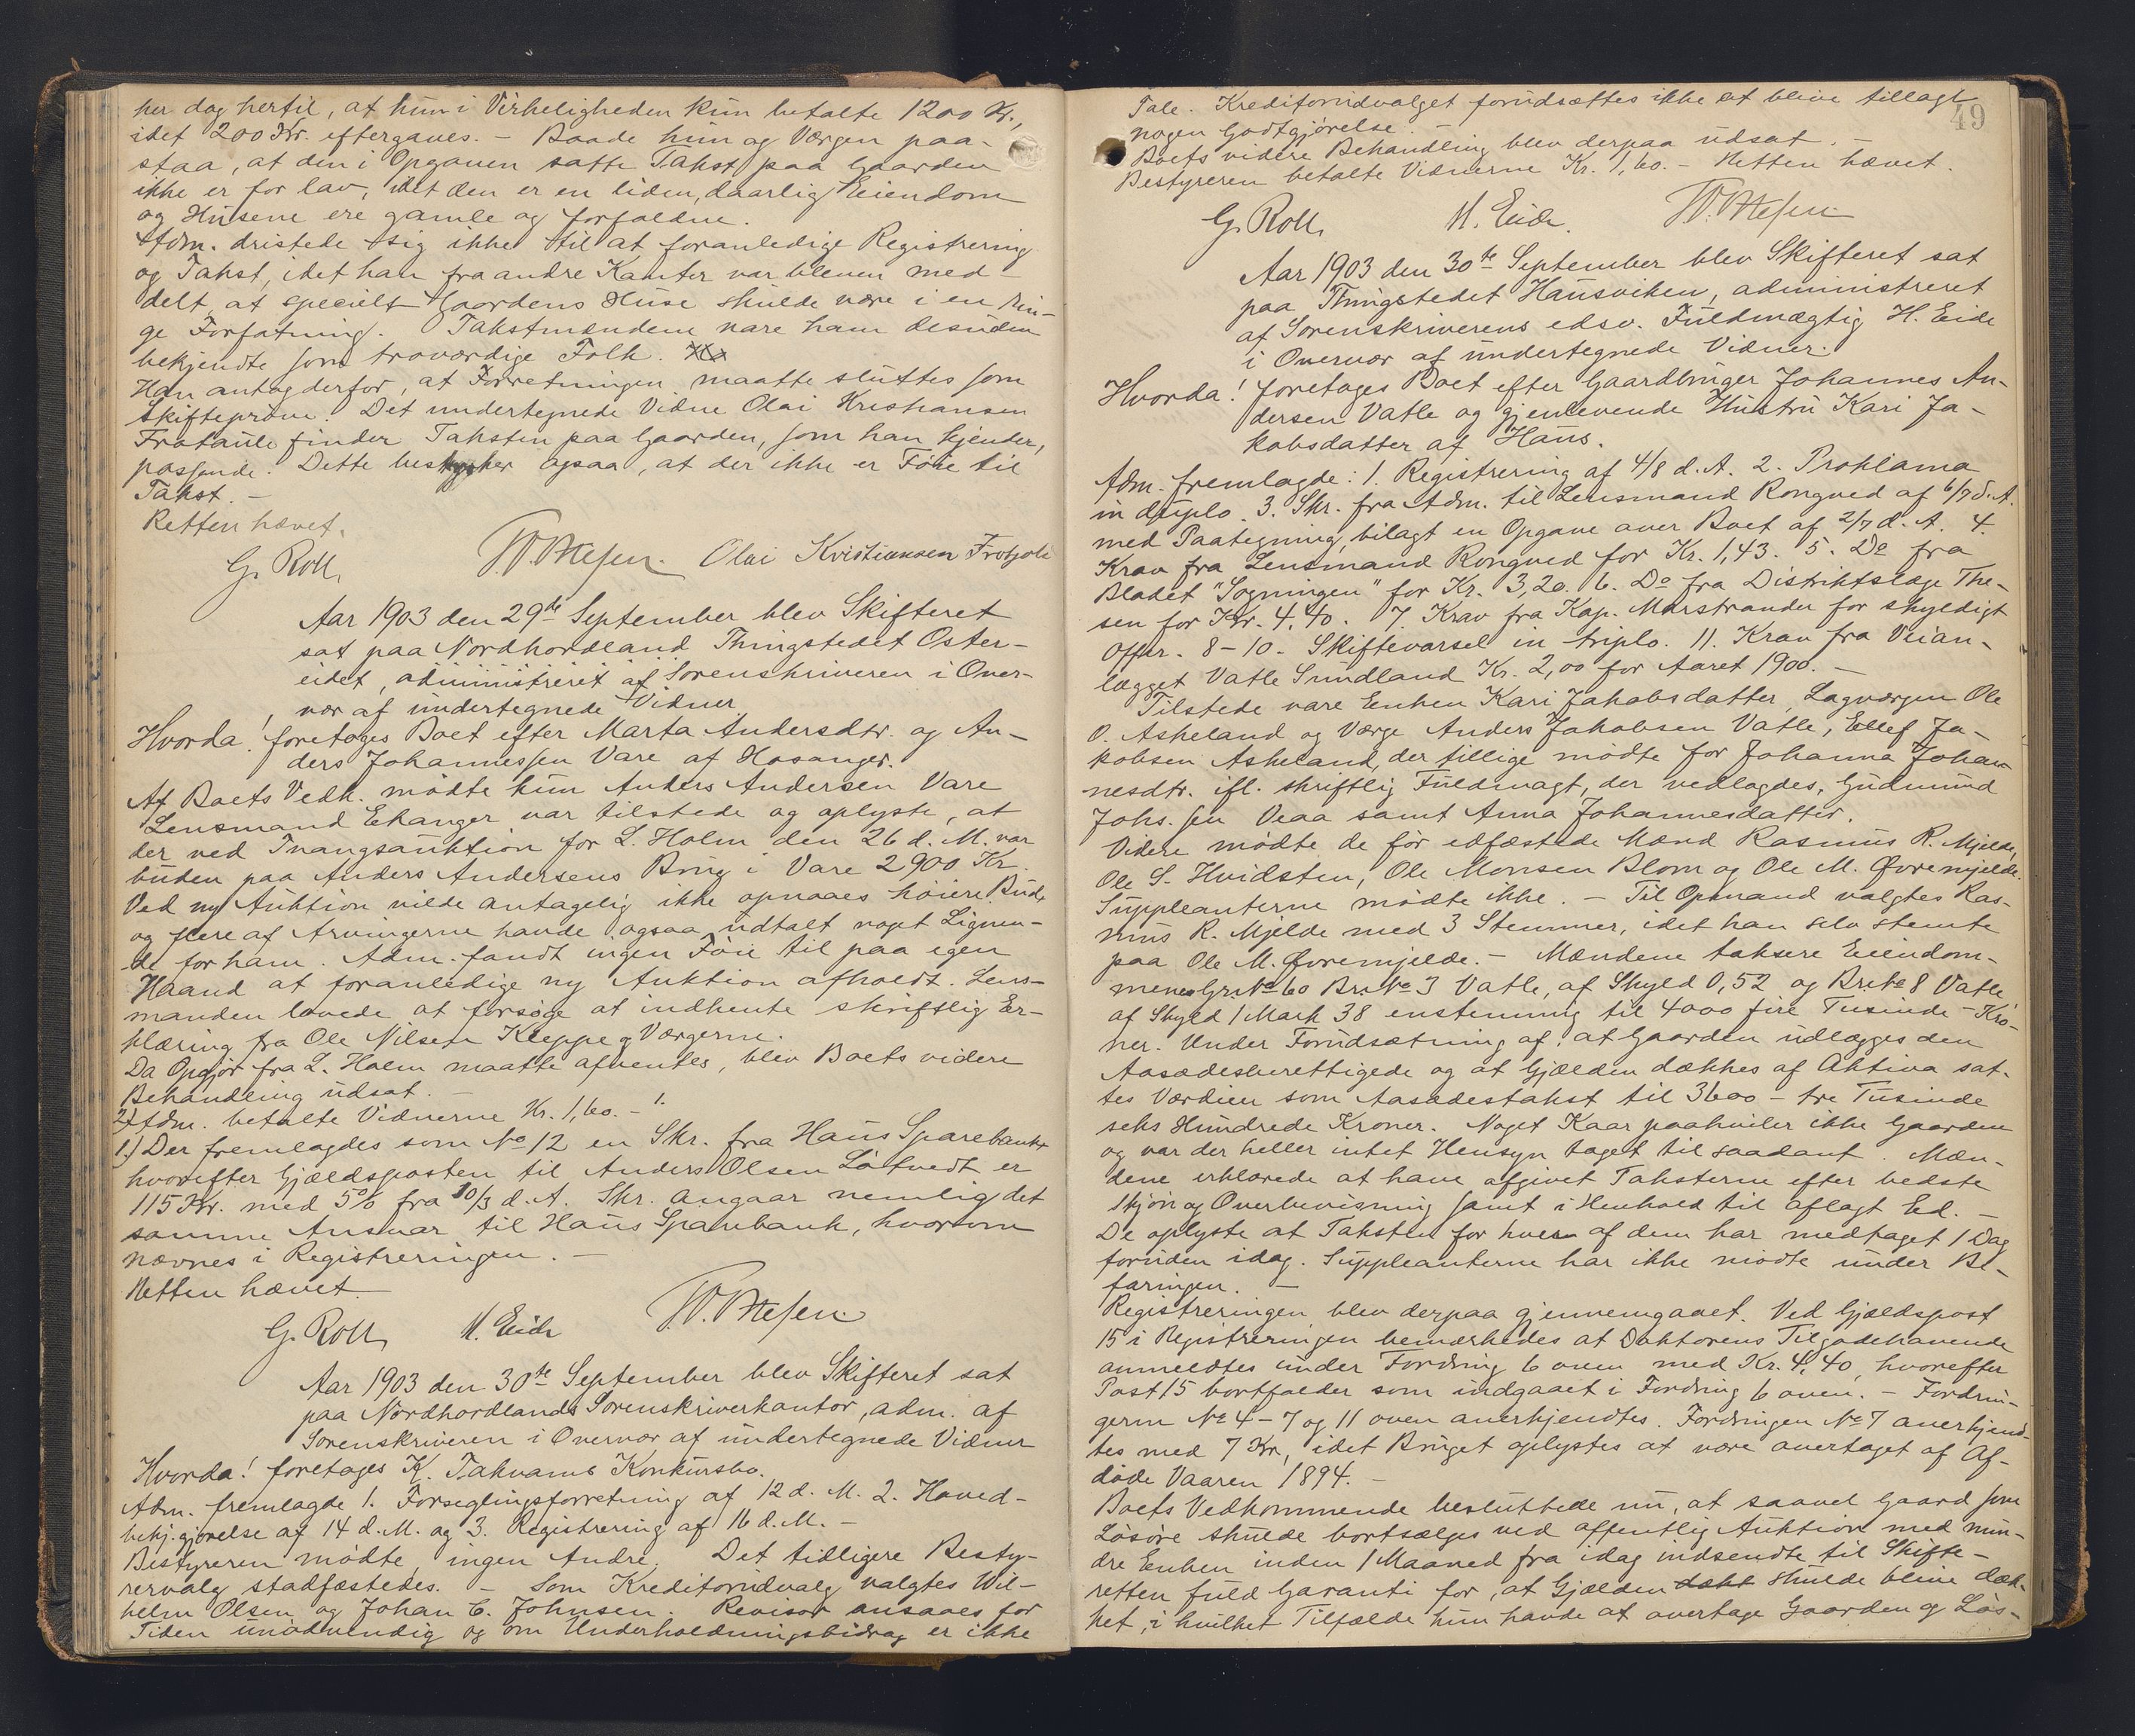 her dog hertil, at hun i Virkeligheden kun betalte 1200 Kr.,
idet 200 Kr. eftergaves. - Baade hun og Værgen paa-
staa, at den i Opgaven satte Takst paa Gaarden
ikke er for lav, idet den er en liden, daarlig Eiendom
og Husene ere gamle og forfaldne.
Adm. dristede sig ikke til at foranledige Registrering
og Takst, idet han fra andre Kanter var bleven med-
delt at specielt Gaardens Huse skulde være i en rin-
ge Forfatning. Takstmændene vare ham desuden
bekjendte som troværdige Folk.
Han antog derfor, at Forretningen maatte sluttes som
Skifteprøve. Det undertegnede Vidne Olai Kristiansen
Frotaule finder Taksten paa Gaarden, som han kjender,
passende. Dette bestyrker ogsaa, at der ikke er Føie til
Takst. -
Retten hævet.
G. Roll, Olai Kristiansen
Aar 1903 den 29de September blev Skifteret
sat paa Nordhordland Thingstedet Oster-
eidet, administreret af Sorenskriveren i Over-
vær af undertegnede Vidner.
Hvorda! foretoges Boet efter Marta Andersdtr. og An-
ders Johannessen Vare af Hosanger.
Af Boets Vedk. mødte kun Anders Andersen Vare
Lensmand Ekanger var tilstede og oplyste, at
der ved Tvangsauktion for L. Holm den 26 d. M. var
buden paa Anders Andersens Brug i Vare 2900 Kr.
Ved ny Auktion vilde antagelig ikke opnaaes høiere Bud,
og flere af Arvingerne havde ogsaa udtalt noget Lignen-
de for ham. Adm. fandt ingen Føie til paa egen
Haand at foranledige ny Auktion afholdt. Lens-
manden lovede at forsøge at indhente skriftlig Er-
klæring fra Ole Nilsen Kleppe og Værgerne.
Da Opgjør fra L. Holm maatte afventes, blev Boets videre
Behandling udsat. -
2) Adm. betalte Vidnerne Kr. 1,60. -
1) Der fremlagdes som No 12 en Skr. fra Haus Sparebank,
hvorefter Gjældsposten til Anders Olsen Løtvedt er
115 Kr. med 5% fra 10/3 d. A. Skr. angaar nemlig det
samme Ansvar til Haus Sparebank, hvorom
nævnes i Registreringen. -
Retten hævet.
G. Roll H. Eide
Aar 1903 den 30te September blev Skifteret sat
paa Nordhordlands Sorenskriverkontor, adm. af
Sorenskriveren i Overvær af undertegnede Vidner
Hvorda! foretoges K. Takvams Konkursbo.
Adm. fremlagde 1. Forseglingsforretning af 12 d. M. 2. Hoved-
bekj.gjørelse af 14 d. M. og 3. Registrering af 16 d. M. -
Bestyreren mødte ingen Andre. Det tidligere Besty-
rervalg stadfæstedes. - Som Kreditorudvalg valgtes Wil-
helm Olsen og Johan C. Johnsen. Revisor ansaaes for
Tiden unødvendig og om Underholdningsbidrag er ikke
49
Tale. Kreditorudvalget forudsættes ikke at blive tillagt
nogen Godtgjørelse. -
Boets videre Behandling blev derpaa udsat. -
Bestyreren betalte Vidnerne Kr. 1,60. - Retten hævet.
G. Roll, H. Eide.
Aar 1903 den 30te September blev Skifteret sat
paa Thingstedet Hausviken, administreret
af Sorenskriverens edsv. Fuldmægtig H. Eide
i Overvær af undertegnede Vidner.
Hvorda! foretoges Boet efter Gaardbruger Johannes An-
dersen Vatle og gjenlevende Hustru Kari Ja-
kobsdatter af Haus.
Adm. fremlagde: 1. Registrering af 4/8 d. A. 2. Proklama
in duplo. 3. Skr. fra Adm. til Lensmand Rongved af 6/7 d. A.
med Paategning, bilagt en Opgave over Boet af 2/7 d. A. 4.
Krav fra Lensmand Rongved for Kr. 1,43. 5. Do fra
Bladet "Søgningen" for Kr. 3,20. 6. Do fra Distriktslæge The-
sen for Kr. 4,40. 7. Krav fra Kap. Marstrander for skyldigt
Offer. 8-10. Skiftevarsel in triplo. 11. Krav fra Veian-
lægget Vatle Sundland Kr. 2,00 for Aaret 1900. -
Tilstede vare Enken Kari Jakobsdatter, Lagværgen Ole
O. Askeland og Værge Anders Jakobsen Vatle, Ellef Ja-
kobsen Askeland, der tillige mødte for Johanna Johan-
nesdtr. ifl. skriftlig Fuldmagt, der vedlagdes, Gudmund
Johs.sen Veaa samt Anna Johannesdatter.
Videre mødte de før edfæstede Mænd Rasmus R. Mjelde,
Ole S. Hvidsten, Ole Monsen Blom og Ole M. Øvremjelde.
Suppleanterne mødte ikke. - Til Opmand valgtes Ras-
mus R. Mjelde med 3 Stemmer, idet han selv stemte
paa Ole M. Øvremjelde. - Mændene taksere Eiendom-
mene Gr. No 60 Br. No 3 Vatle, af Skyld 0,52 og Br. No 8 Vatle
af Skyld 1 Mark 38 enstemmig til 4000 fire Tusinde - Kro-
ner. Under Forudsætning af, at Gaarden udlægges den
Aasædesberettigede og at Gjælden dækkes af Aktiva sat-
tes Værdien som Aasædestakst til 3600 - tre Tusinde
seks Hundrede Kroner. Noget Kaar paahviler ikke Gaarden
og var der heller intet Hensyn taget til saadant. Mæn-
dene erklærede at have afgivet Taksterne efter bedste
Skjøn og Overbevisning samt i Henhold til aflagt Ed. -
De oplyste at Taksten for hver af dem har medtaget 1 Dag
foruden idag. Suppleanterne har ikke mødte under Be-
faringen. -
Registreringen blev derpaa gjennemgaaet. Ved Gjældspost
15 i Registreringen bemærkedes at Doktorens Tilgodehavende
anmeldtes under Fordring 6 oven med Kr. 4,40, hvorefter
Post 15 bortfalder som indgaaet i Fordring 6 oven. - Fordrin-
gerne No 4-7 og 11 oven anerkjendtes. Fordringen No 7 anerkjend-
tes med 7 Kr., idet Bruget oplystes at være overtaget af Af-
døde Vaaren 1894. -
Boets Vedkommende besluttede nu, at saavel Gaard som
Løsøre skulde bortsælges ved offentlig Auktion med min-
dre Enken inden 1 Maaned fra idag indsendte til Skifte-
retten fuld Garanti for, at Gjælden dækt skulde blive dæk-
ket, i hvilket Tilfælde hun havde at overtage Gaarden og Løs-